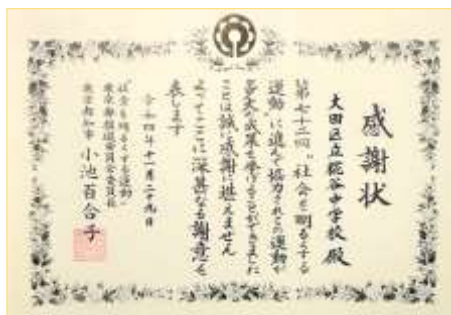 感謝状
大田区立糀谷中学校殿
第七十二回"社会を明るくする
運動"に進んで協力されこの運動が
多大の成果を挙げることができました
ことは誠に感謝に堪えません
よってここに深甚なる謝意を
表します
令和四年十一月二十九日
"社会を明るくする運動"
東京都推進委員会委員長
東京都知事 小池百合子